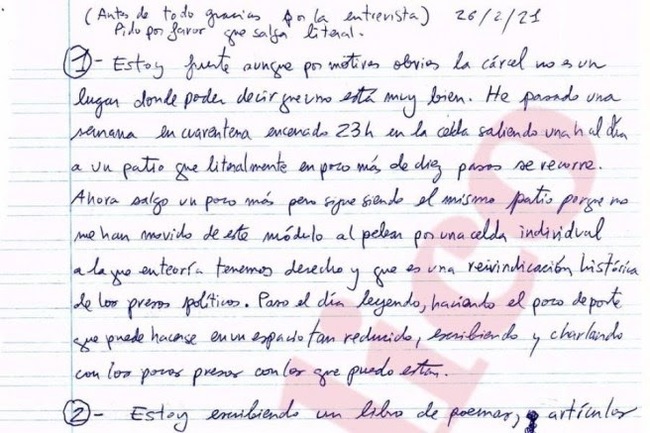 (Antes de todo gracias por la entrevista) 26/2/21
Pido por favor que salga literal.
1- Estoy fuerte aunque por motivos obvios la cárcel no es un
lugar donde poder decir que uno está muy bien. He pasado una
semana en cuarentena encerrado 23h en la celda saliendo una h al día
a un patio que literalmente en poco más de diez pasos se recorre.
Ahora salgo un poco más pero sigue siendo el mismo patio porque no
me han movido de este módulo al pelear por una celda individual
a la que en teoría tenemos derecho y que es una reivindicación histórica
de los presos políticos. Paso el día leyendo, haciendo el poco deporte
que puede hacerse en un espacio tan reducido, escribiendo y charlando
con los pocos presos con los que puedo estar.
2- Estoy escribiendo un libro de poemas, artículos